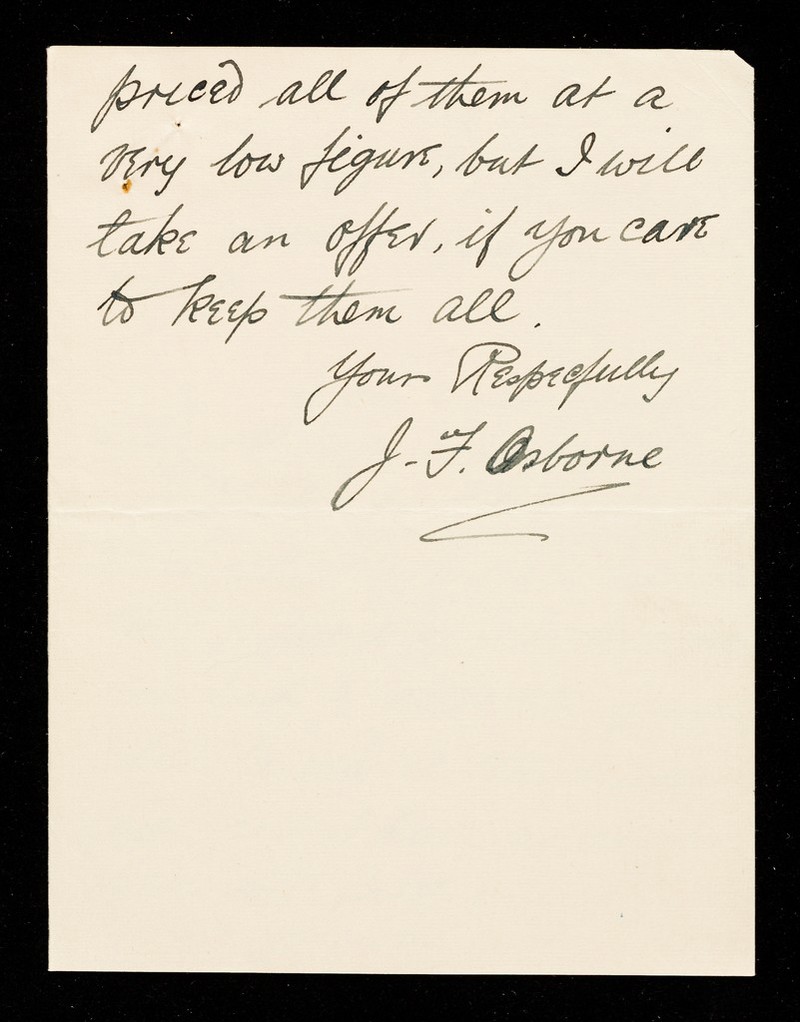 priced all of them at a
very low figure, but I will
take an offer, if you care
to keep them all.
Yours Respecfully
J. F. Osborne